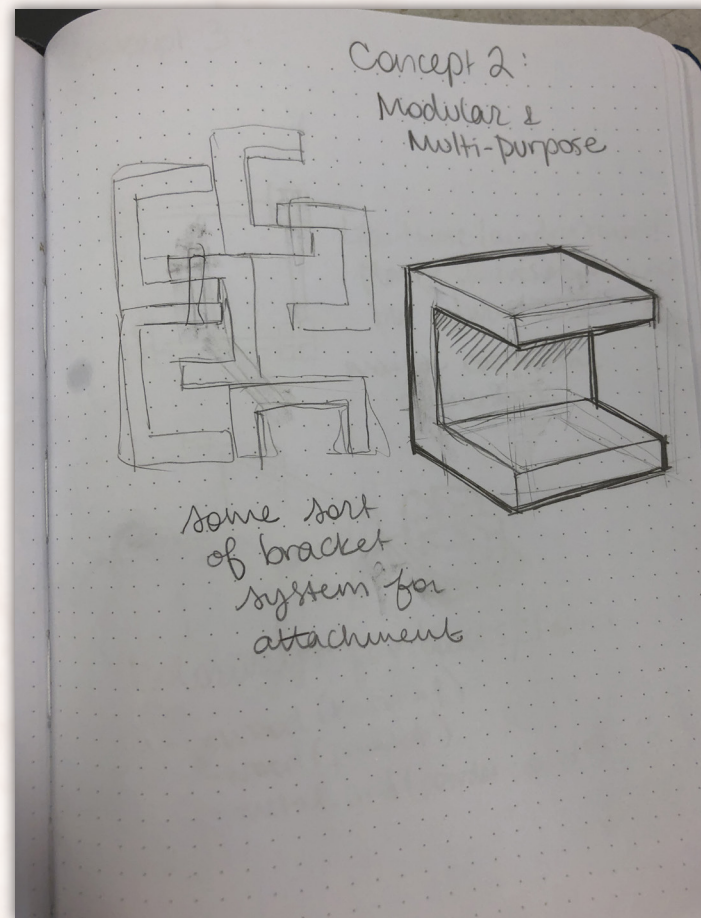 Concept 2:
Modular &
Multi-purpose
some sort
of bracket
system for
attachment